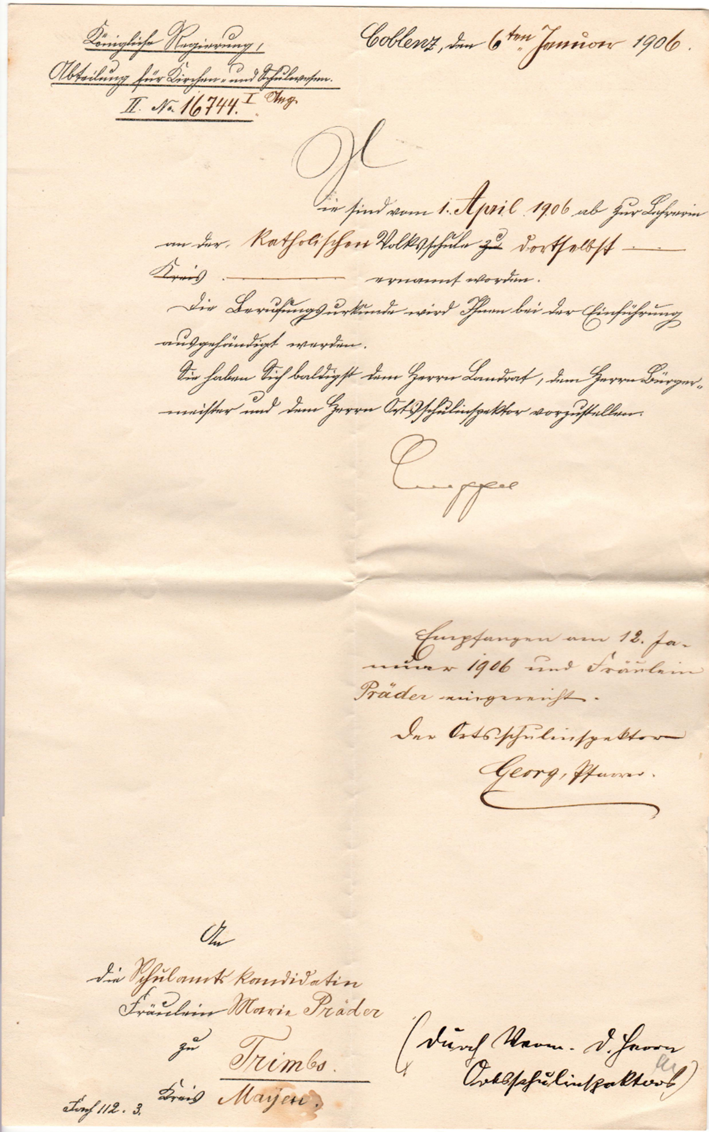 Königliche Regierung,
Abteilung für Kirchen- und Schulwesen.
II. No 16744. I Ang.
Coblenz, den 6ten Januar 1906.
Sie sind vom 1. April 1906 ab zur Lehrerin
an der katholischen Volksschule zu dortselbst
Kreis ernannt worden.
Die Berufungsurkunde wird Ihnen bei der Einführung
ausgehändigt werden.
Sie haben Sich baldigst dem Herrn Landrat, dem Herrn Bürger-
meister und dem Herrn Ortsschulinspektor vorzustellen.
Empfangen am 12. Ja-
nuar 1906 und Fräulein
Präder eingereicht.
Der Ortsschulinspektor
Georg, Pfarrer.
An
die Schulamtskandidatin
Fräulein Marie Präder
zu
Trimbs.
Kreis Mayen.
(Durch Verm. d. Herrn
Ortsschulinspektors)
112. 3.